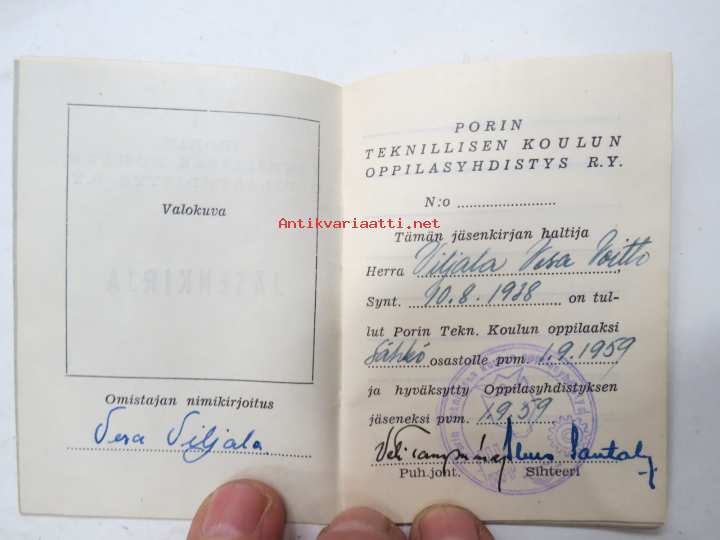 Valokuva
Omistajan nimikirjoitus
Vesa Viljala
PORIN
TEKNILLISEN KOULUN
OPPILASYHDISTYS R.Y.
N:o
Antikvariaatti.net
Tämän jäsenkirjan haltija
Herra Viljala Vesa Voitto,
Synt. 10.8.1938 on tul-
lut Porin Tekn. Koulun oppilaaksi
Sähkö osastolle pvm. 1.9.1959
ja hyväksytty Oppilasyhdistyksen
jäseneksi pvm. 1.9.59
Puh.joht. Sihteeri
JÄSENKIRJA